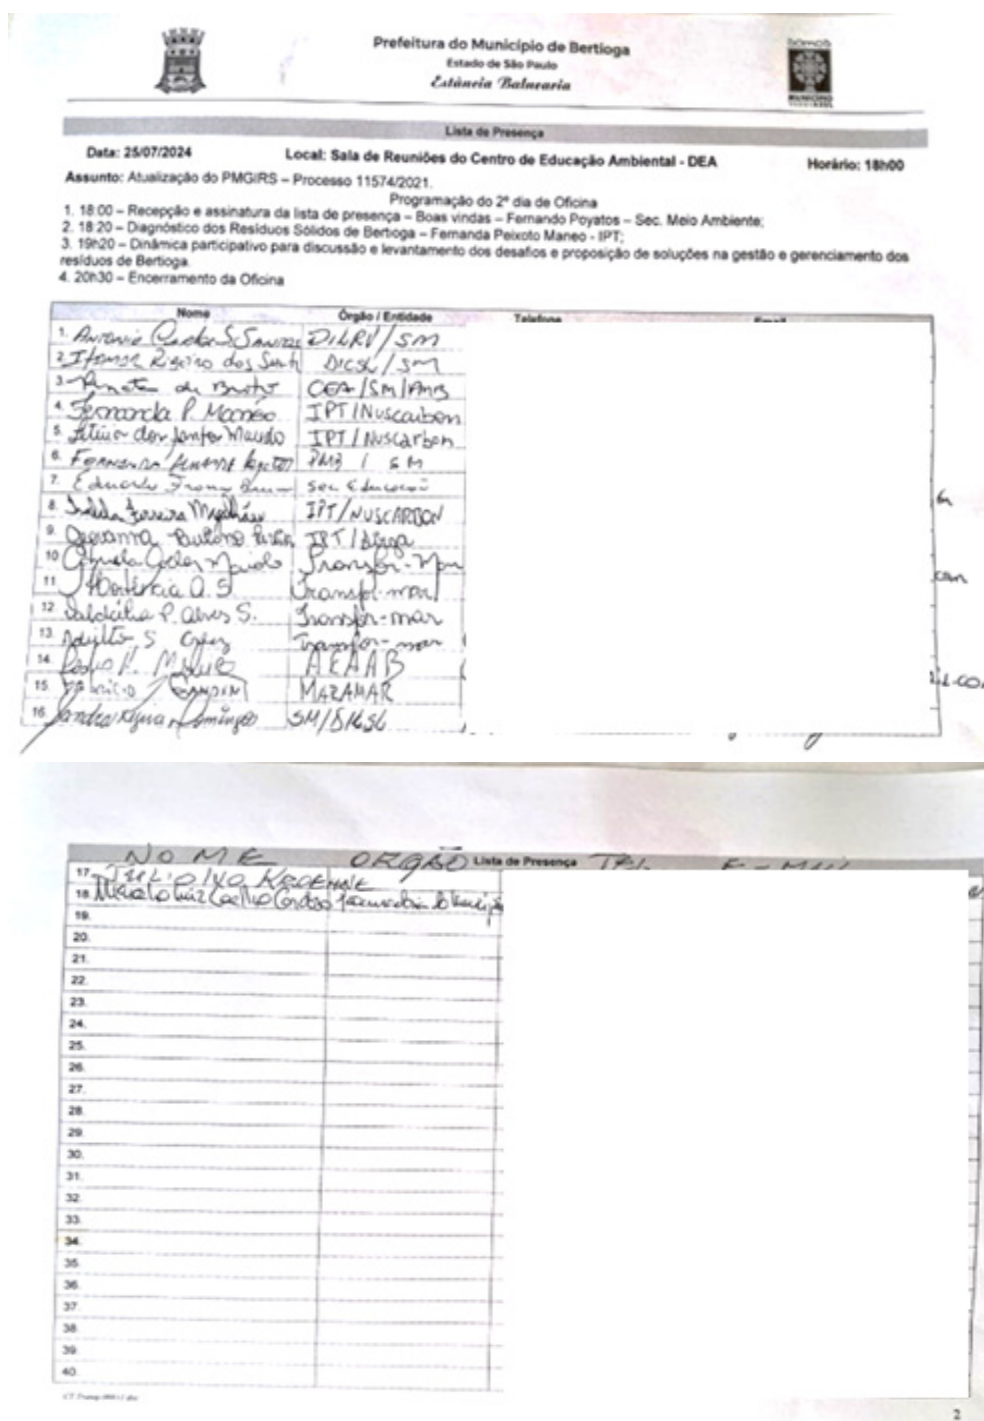 Prefeitura do Município de Bertioga
Estado de São Paulo
Estância Balnearia
SOMOS
MUNICÍPIO
Lista de Presença
Data: 25/07/2024 Local: Sala de Reuniões do Centro de Educação Ambiental - DEA Horário: 18h00
Assunto: Atualização do PMGIRS – Processo 11574/2021.
Programação do 2º dia de Oficina
1. 18:00 – Recepção e assinatura da lista de presença – Boas vindas – Fernando Poyatos – Sec. Meio Ambiente;
2. 18:20 – Diagnóstico dos Resíduos Sólidos de Bertioga – Fernanda Peixoto Maneo - IPT;
3. 19h20 – Dinâmica participativo para discussão e levantamento dos desafios e proposição de soluções na gestão e gerenciamento dos
resíduos de Bertioga.
4. 20h30 – Encerramento da Oficina
Nome Órgão / Entidade Telefone Email
1. Antonio Santos DILRV/SM
2. Ribeiro dos DICSL/SM
3. de CEA/SM/PMB
4. Fernanda P. Maneo IPT/Nuscarbon
5. Leticia dos Santos Macedo IPT/Nuscarbon
6. PMB / SM
7. Eduardo Sec Educação
8. Ferreira Magalhães IPT/NUSCARBON
9. Giovanna IPT/
10. Transfor-Mar
11. Hortência A. S Transfor-mar
12. P. Alves S. Transfor-mar
13. S Transfor-mar
14. Pedro H. AEAAB
15. Fabricio GANDINI MARAMAR
16. Sandra Domingos SM/
NOME ORGÃO Lista de Presença TEL E-MAIL
17. IVO
18. Marcelo Luiz Coelho Cardoso
19.
20.
21.
22.
23.
24.
25.
26.
27.
28.
29.
30.
31.
32.
33.
34.
35.
36.
37.
38.
39.
40.
2